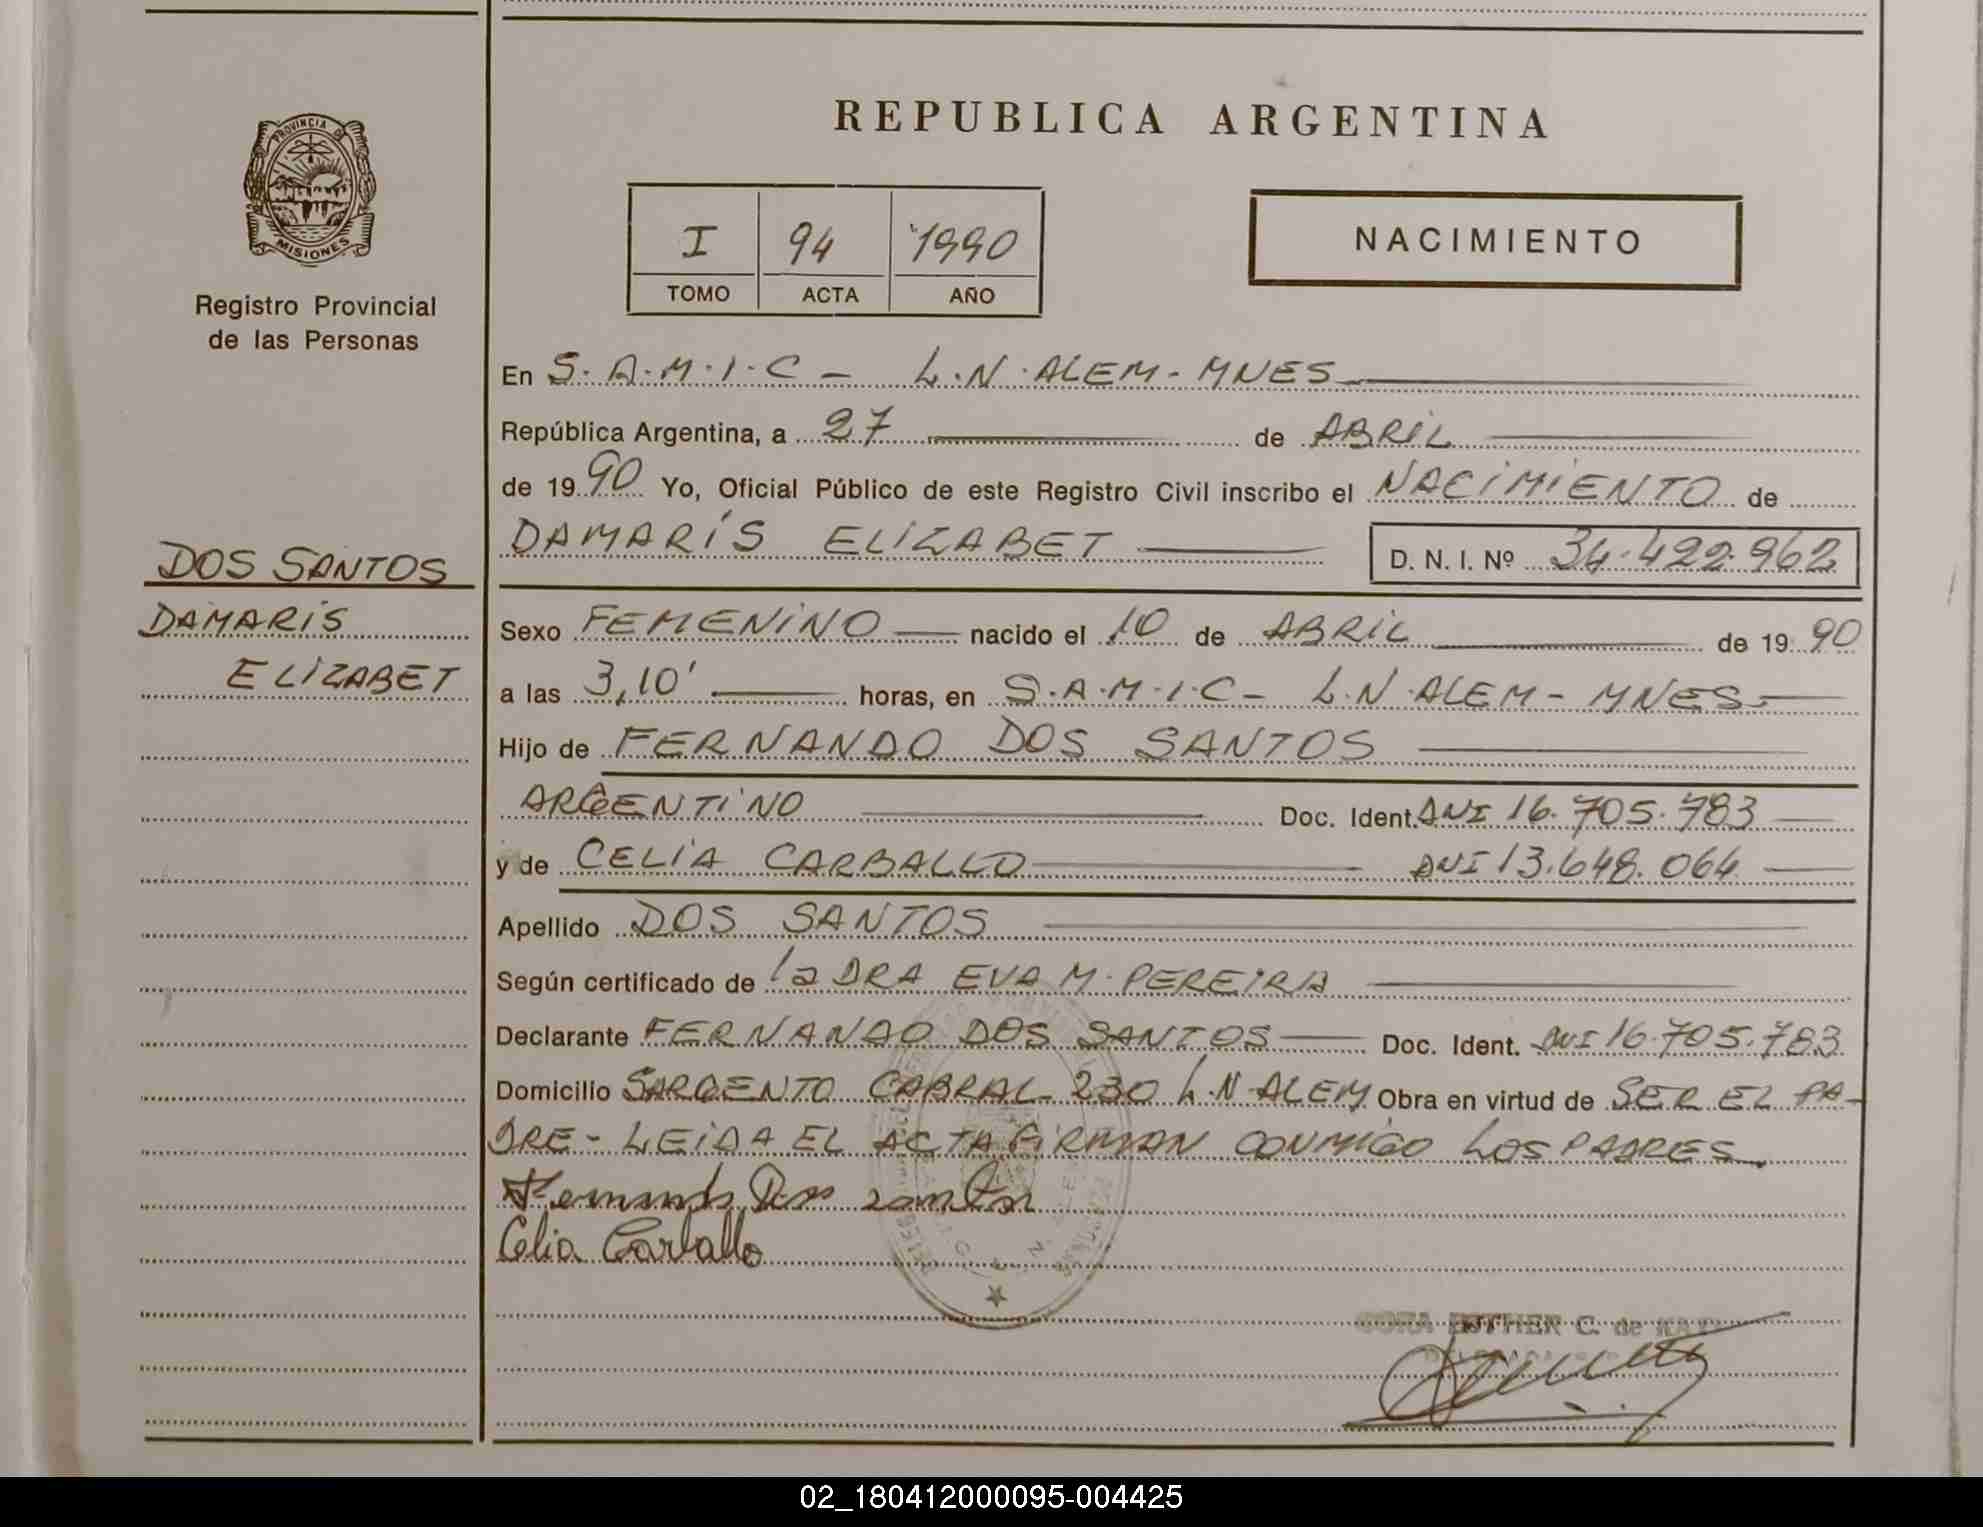 REPUBLICA ARGENTINA
PROVINCIA DE
MISIONES
Registro Provincial
de las Personas
I 94 1990
TOMO ACTA AÑO
NACIMIENTO
En S.A.M.I.C - L.N.ALEM-MNES
República Argentina, a 27 de ABRIL
de 19 90 Yo, Oficial Público de este Registro Civil inscribo el NACIMIENTO de
DAMARIS ELIZABET D. N. I. Nº 34.422.962
DOS SANTOS
DAMARIS
ELIZABET
Sexo FEMENINO nacido el 10 de ABRIL de 19 90
a las 3,10' horas, en S.A.M.I.C- L.N.ALEM- MNES
Hijo de FERNANDO DOS SANTOS
ARGENTINO Doc. Ident. DNI 16.705.783
y de CELIA CARBALLO DNI 13.648.064
Apellido DOS SANTOS
Según certificado de la DRA EVA M. PEREIRA
Declarante FERNANDO DOS SANTOS Doc. Ident. DNI 16.705.783
Domicilio SARGENTO CABRAL 230 L.N.ALEM Obra en virtud de SER EL PA-
DRE- LEIDA EL ACTA FIRMAN CONMIGO LOS PADRES
Fernando Dos santos
Celia Carballo
ESTHER C. de
02_180412000095-004425